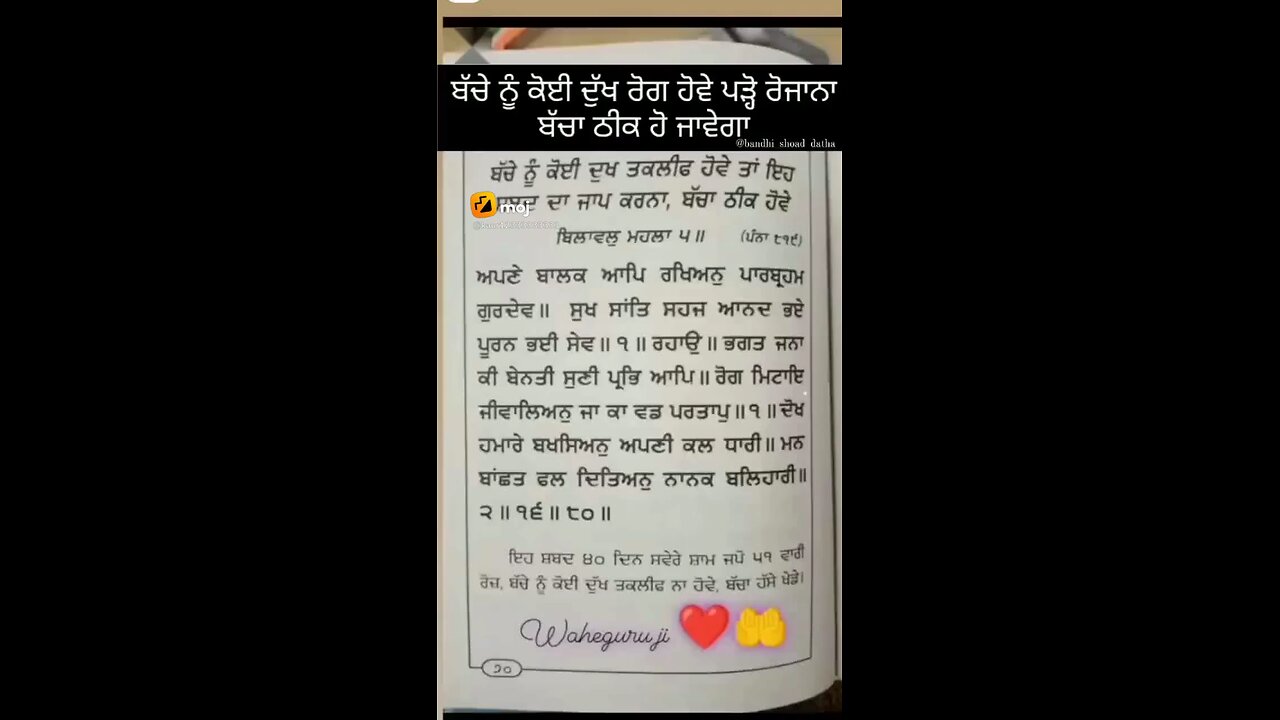 ਬੱਚੇ ਨੂੰ ਕੋਈ ਦੁੱਖ ਰੋਗ ਹੋਵੇ ਪੜ੍ਹੋ ਰੋਜਾਨਾ
ਬੱਚਾ ਠੀਕ ਹੋ ਜਾਵੇਗਾ
@bandhi shoad datha
ਬੱਚੇ ਨੂੰ ਕੋਈ ਦੁਖ ਤਕਲੀਫ ਹੋਵੇ ਤਾਂ ਇਹ
ਦਾ ਜਾਪ ਕਰਨਾ, ਬੱਚਾ ਠੀਕ ਹੋਵੇ
moj
ਬਿਲਾਵਲੁ ਮਹਲਾ ੫॥ (ਪੰਨਾ ੮੧੯)
ਅਪਣੇ ਬਾਲਕ ਆਪਿ ਰਖਿਅਨੁ ਪਾਰਬ੍ਰਹਮ
ਗੁਰਦੇਵ॥ ਸੁਖ ਸਾਂਤਿ ਸਹਜ ਆਨਦ ਭਏ
ਪੂਰਨ ਭਈ ਸੇਵ॥੧॥ ਰਹਾਉ॥ ਭਗਤ ਜਨਾ
ਕੀ ਬੇਨਤੀ ਸੁਣੀ ਪ੍ਰਭਿ ਆਪਿ॥ ਰੋਗ ਮਿਟਾਇ
ਜੀਵਾਲਿਅਨੁ ਜਾ ਕਾ ਵਡ ਪਰਤਾਪੁ॥੧॥ ਦੋਖ
ਹਮਾਰੇ ਬਖਸਿਅਨੁ ਅਪਣੀ ਕਲ ਧਾਰੀ॥ ਮਨ
ਬਾਂਛਤ ਫਲ ਦਿਤਿਅਨੁ ਨਾਨਕ ਬਲਿਹਾਰੀ॥
੨॥੧੬॥੮੦॥
ਇਹ ਸ਼ਬਦ ੪੦ ਦਿਨ ਸਵੇਰੇ ਸ਼ਾਮ ਜਪੋ ੫੧ ਵਾਰੀ
ਰੋਜ਼, ਬੱਚੇ ਨੂੰ ਕੋਈ ਦੁੱਖ ਤਕਲੀਫ ਨਾ ਹੋਵੇ, ਬੱਚਾ ਹੱਸੇ ਖੇਡੇ।
Waheguru ji
੨੦